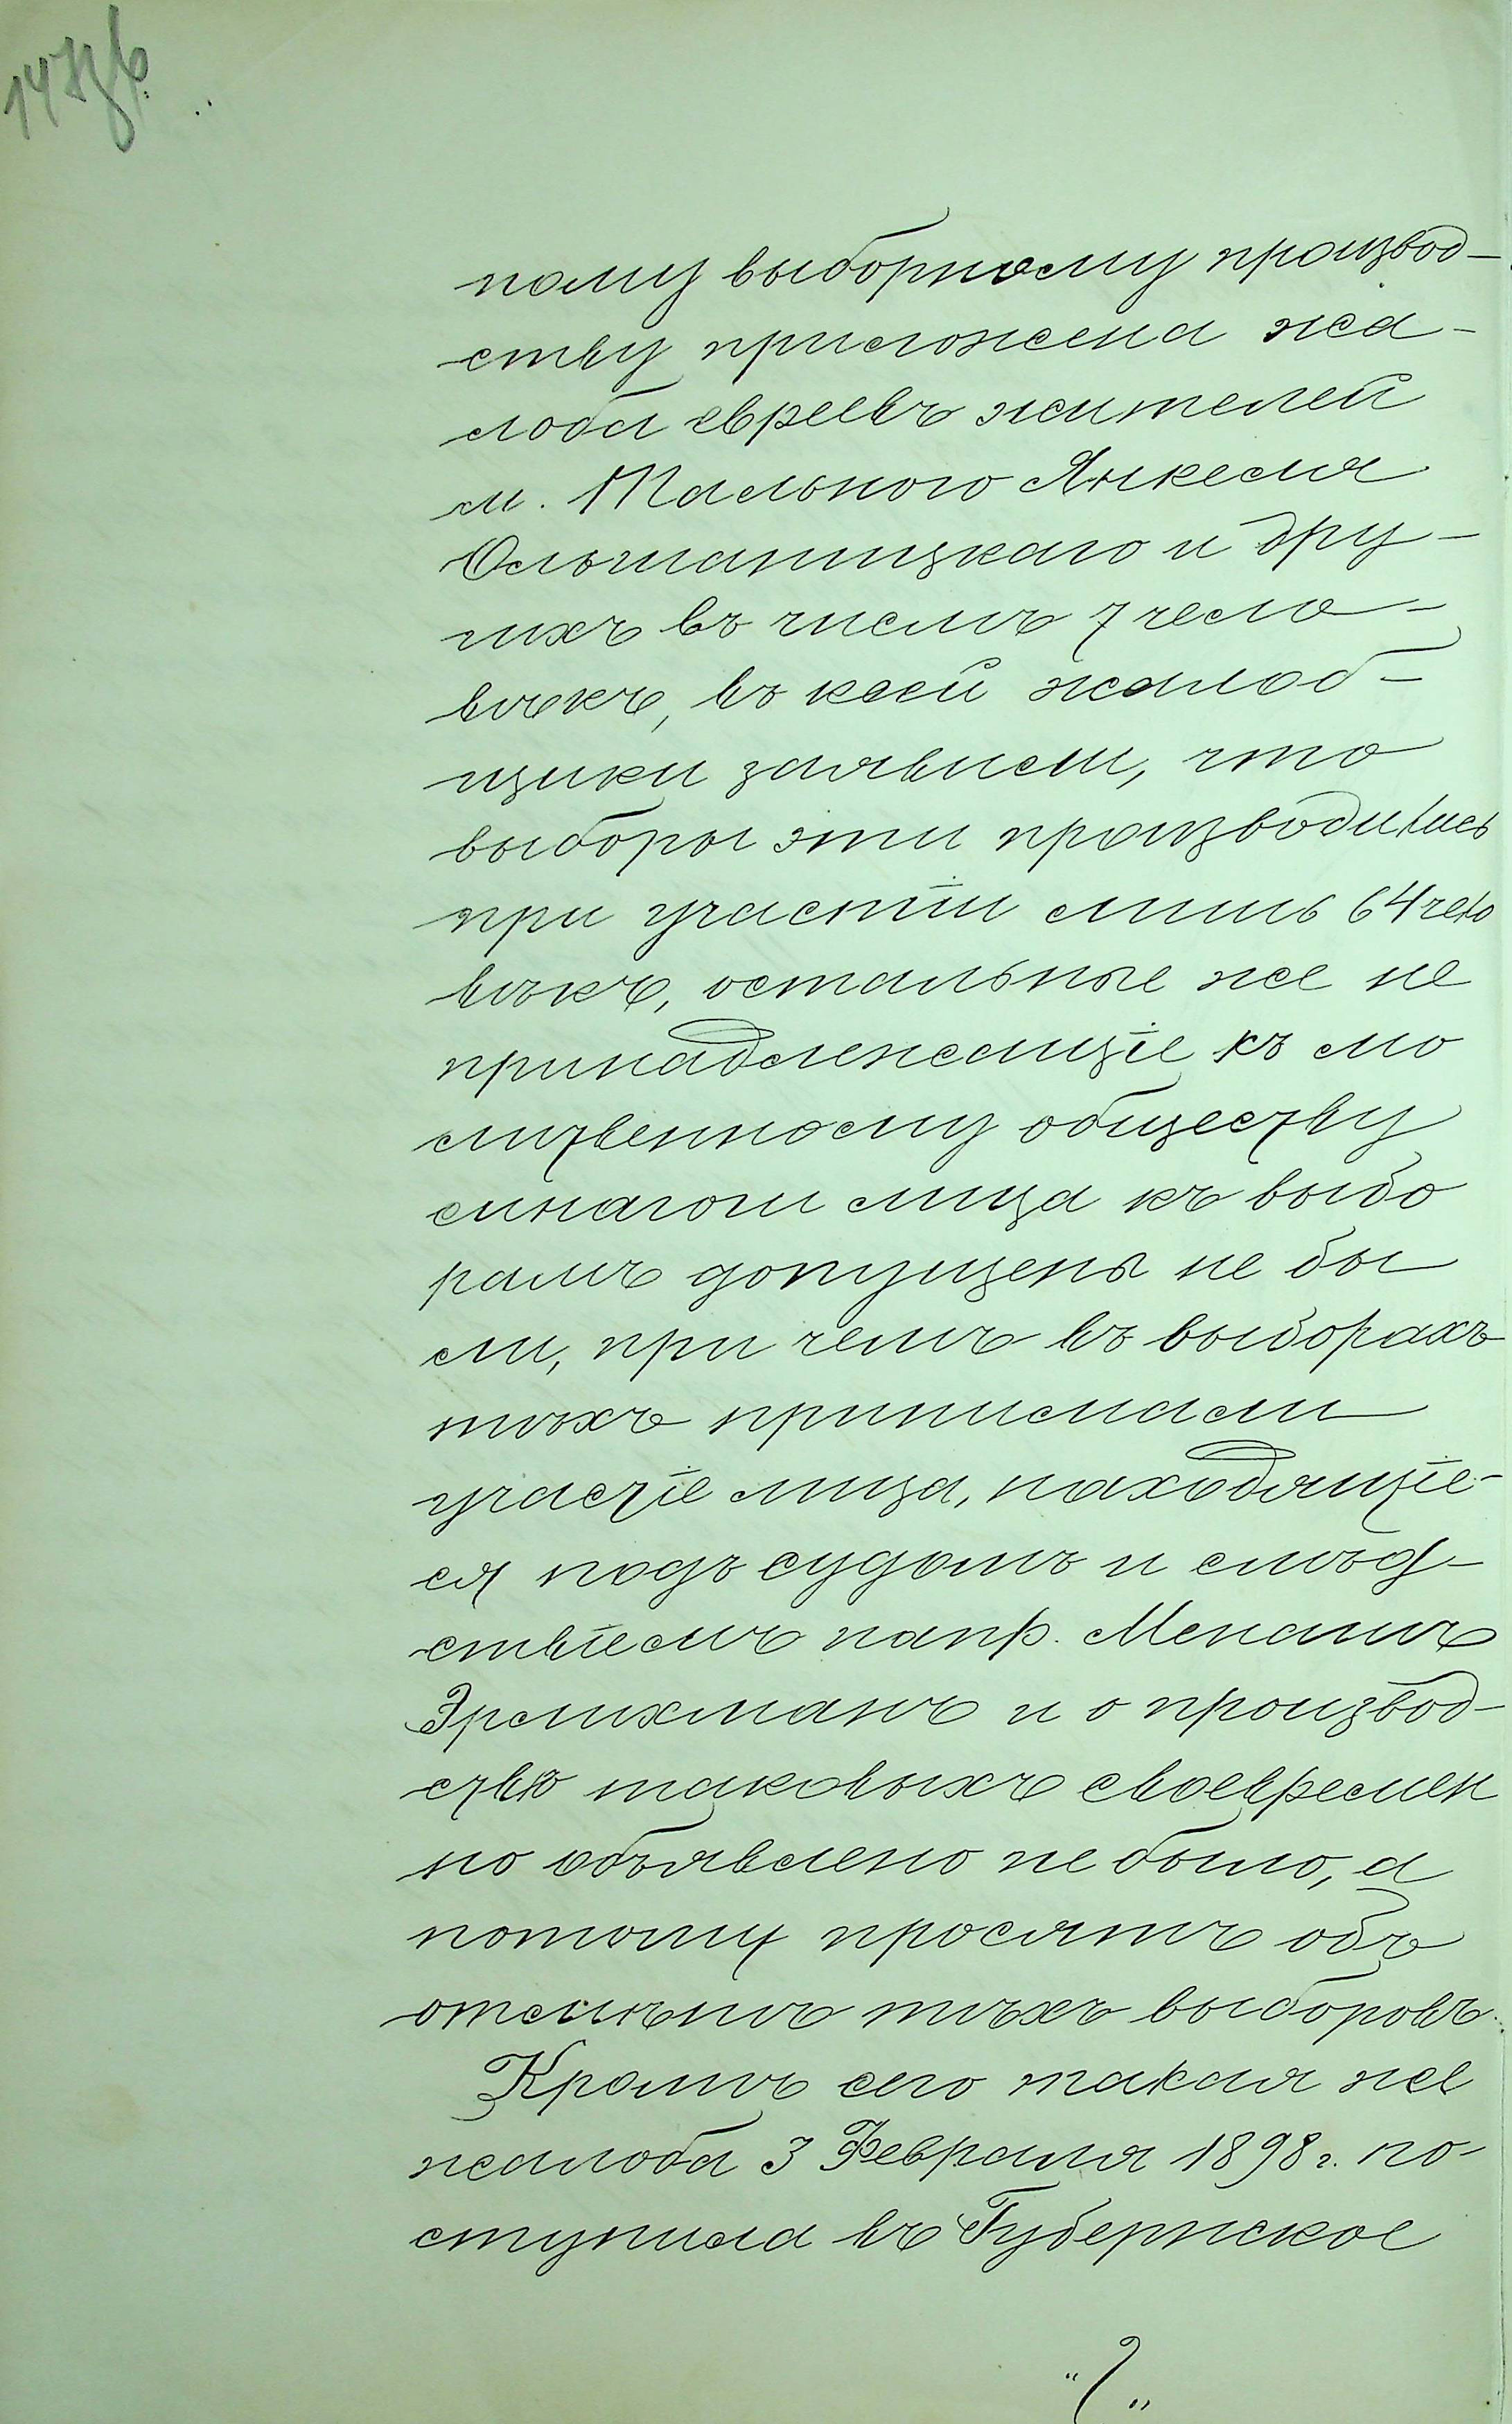 ному выборному производ-
ству приложена жа-
лоба евреевъ жителей
м. Тального Янкеля
Ольшаницкаго и дру-
гихъ въ числѣ 7 чело-
вѣкъ, въ коей жалоб-
щики заявили, что
выборы эти производились
при участіи лишь 64 чело
вѣкъ, остальные же не
принадлежащіе къ мо
литвенному обществу
синагоги лица къ выбо
рамъ допущены не бы
ли, при чемъ въ выборахъ
тѣхъ принимали
участіе лица, находящіе-
ся подъ судомъ и слѣд-
ствіемъ напр. Менашъ
Эрлихманъ и о производ-
ствѣ таковыхъ своевремен
но объявлено не было, а
потому просятъ объ
отмѣнѣ тѣхъ выборовъ.
Кромѣ сего такая же
жалоба 3 Февраля 1898 г. по-
ступила въ Губернское